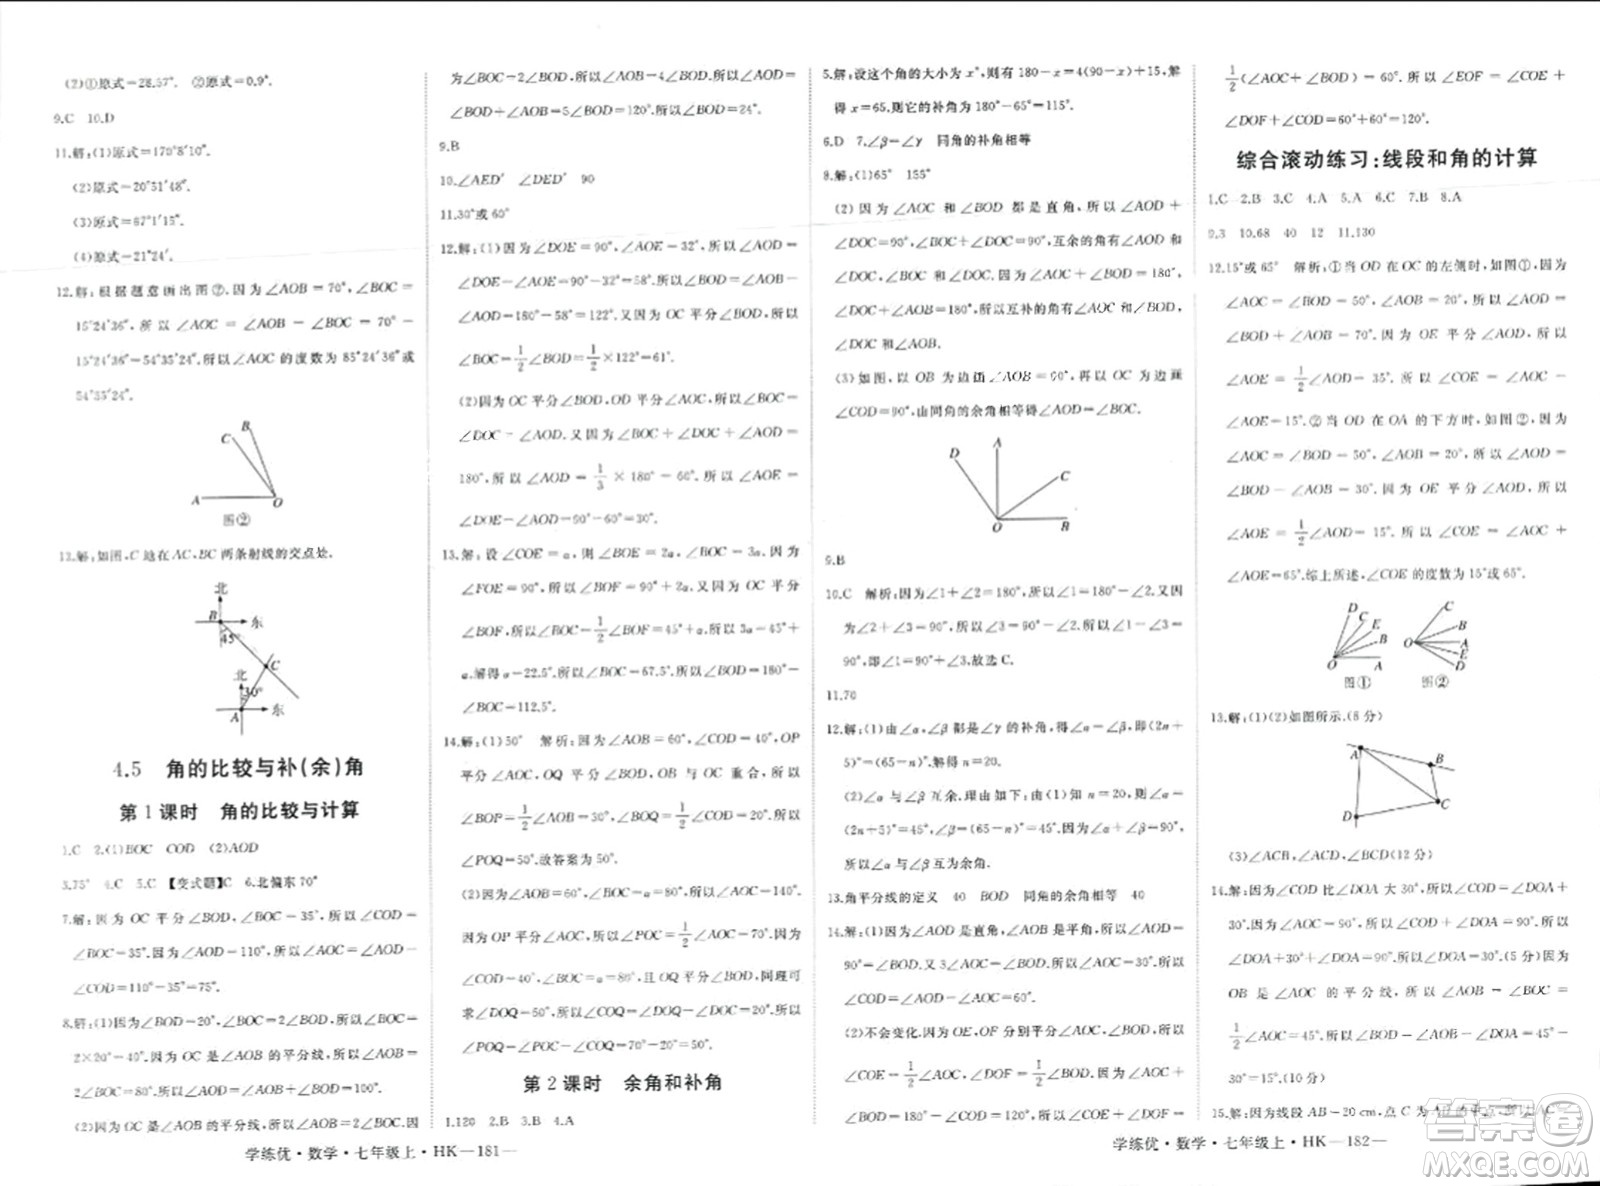 (2)①原式=28.57°. ②原式=0.9°.
9.C 10.D
11.解:(1)原式=170°8′10″.
(2)原式=20°51′48″.
(3)原式=87°1′15″.
(4)原式=21°24′.
12.解:根据题意画出图②.因为∠AOB=70°,∠BOC=
15°24′36″,所以∠AOC=∠AOB-∠BOC=70°-
15°24′36″=54°35′24″.所以∠AOC的度数为85°24′36″或
54°35′24″.
B
C
A
O
图②
13.解:如图,C地在AC,BC两条射线的交点处.
北
B
东
45°
C
北
30°
A
东
4.5 角的比较与补(余)角
第1课时 角的比较与计算
1.C 2.(1)BOC COD (2)AOD
3.75° 4.C 5.C 【变式题】C 6.北偏东70°
7.解:因为OC平分∠BOD,∠BOC=35°,所以∠COD=
∠BOC=35°.因为∠AOD=110°,所以∠AOC=∠AOD-
∠COD=110°-35°=75°.
8.解:(1)因为∠BOD=20°,∠BOC=2∠BOD,所以∠BOC=
2×20°=40°.因为OC是∠AOB的平分线,所以∠AOB=
2∠BOC=80°.
(2)因为OC是∠AOB的平分线,所以∠AOB=2∠BOC.因
学练优·数学·七年级上·HK—181—
为∠BOC=2∠BOD,所以∠AOB=4∠BOD.所以∠AOD=
∠BOD+∠AOB=5∠BOD=120°.所以∠BOD=24°.
9.B
10.∠AED′ ∠DED′ 90
11.30°或60°
12.解:(1)因为∠DOE=90°,∠AOE=32°,所以∠AOD=
∠DOE-∠AOE=90°-32°=58°.所以∠BOD=180°-
∠AOD=180°-58°=122°.又因为OC平分∠BOD,所以
∠BOC=1/2∠BOD=1/2×122°=61°.
(2)因为OC平分∠BOD,OD平分∠AOC,所以∠BOC=
∠DOC=∠AOD.又因为∠BOC+∠DOC+∠AOD=
180°,所以∠AOD=1/3×180°=60°.所以∠AOE=
∠DOE-∠AOD=90°-60°=30°.
13.解:设∠COE=α,则∠BOE=2α,∠BOC=3α.因为
∠FOE=90°,所以∠BOF=90°+2α.因为OC平分
∠BOF,所以∠BOC=1/2∠BOF=45°+α.所以3α=45°+
α.解得α=22.5°.所以∠BOC=67.5°.所以∠AOC=180°-
∠BOC=112.5°.
14.解:(1)50° 解析:因为∠AOB=60°,∠COD=40°,OP
平分∠AOC,OQ平分∠BOD,OB与OC重合,所以
∠BOP=1/2∠AOB=30°,∠BOQ=1/2∠COD=20°.所以
∠POQ=50°.故答案为50°.
(2)因为∠AOB=60°,∠BOC=10°,所以∠AOC=70°.
因为OP平分∠AOC,所以∠POC=1/2∠AOC=35°.
∠COD=40°,∠BOC=α=80°,且OQ平分∠BOD,同理可
求∠DOQ=50°,所以∠COQ=∠DOQ-∠DOC=10°.所以
∠POQ=∠POC-∠COQ=70°-20°=50°.
第2课时 余角和补角
1.120 2.B 3.B 4.A
5.解:设这个角的大小为x°,则有180-x=4(90-x)+15,解
得x=65.则它的补角为180°-65°=115°.
6.D 7.∠β=∠γ 同角的补角相等
8.解:(1)65° 155°
(2)因为∠AOC和∠BOD都是直角,所以∠AOD+
∠DOC=90°,∠BOC+∠DOC=90°,互余的角有∠AOD与
∠DOC,∠BOC与∠DOC.因为∠AOD+∠BOD=180°,
∠DOC+∠AOB=180°,所以互补的角有∠AOC与∠BOD,
∠DOC和∠AOB.
(3)如图,以OB为边画∠AOB=90°,再以OC为边画
∠COD=90°,由同角的余角相等得∠AOD=∠BOC.
D
A
C
O
B
9.B
10.C 解析:因为∠1+∠2=180°,所以∠1=180°-∠2.又因
为∠2+∠3=90°,所以∠3=90°-∠2.所以∠1-∠3=
90°,即∠1=90°+∠3.故选C.
11.70
12.解:(1)由∠α,∠β都是∠γ的补角,所以∠α=∠β,即(2n+
5)°=(65-n)°.解得n=20.
(2)∠α与∠β互余.理由如下:由(1)知n=20,所以∠α=
(2n+5)°=45°,∠β=(65-n)°=45°.因为∠α+∠β=90°,
所以∠α与∠β互为余角.
13.角平分线的定义 40 BOD 同角的余角相等 40
14.解:(1)因为∠AOD是直角,∠AOB是平角,所以∠AOD=
90°=∠BOD.又3∠AOC=∠BOD.所以∠AOC=30°.所以
∠COD=∠AOD-∠AOC=60°.
(2)不会变化.因为OE,OF分别平分∠AOC与∠BOD,所以
∠COE=1/2∠AOC,∠DOF=1/2∠BOD.因为∠AOC+
∠BOD=180°-∠COD=120°,所以∠COE+∠DOF=
学练优·数学·七年级上·HK—182—
1/2(∠AOC+∠BOD)=60°.所以∠EOF=∠COE+
∠DOF+∠COD=60°+60°=120°.
综合滚动练习:线段和角的计算
1.C 2.B 3.C 4.A 5.A 6.C 7.B 8.A
9.3 10.68 40 12 11.130
12.15°或65° 解析:①当OD在OC的左侧时,如图①,因为
∠AOC=∠BOD=50°,∠AOB=20°,所以∠AOD=
∠BOD+∠AOB=70°.因为OE平分∠AOD,所以
∠AOE=1/2∠AOD=35°.所以∠COE=∠AOC-
∠AOE=15°.②当OD在OA的下方时,如图②,因为
∠AOC=∠BOD=50°,∠AOB=20°,所以∠AOD=
∠BOD-∠AOB=30°.因为OE平分∠AOD,所以
∠AOE=1/2∠AOD=15°.所以∠COE=∠AOC+
∠AOE=65°.综上所述,∠COE的度数为15°或65°.
D
C
E
B
O
A
图①
C
B
A
O
E
D
图②
13.解:(1)(2)如图所示.(8分)
A
B
C
D
(3)∠ACB,∠ACD,∠BCD(12分)
14.解:因为∠COD比∠DOA大30°,所以∠COD=∠DOA+
30°.因为∠AOC=90°,所以∠COD+∠DOA=90°.所以
∠DOA+30°+∠DOA=90°.所以∠DOA=30°.(5分)因为
OB是∠AOC的平分线,所以∠AOB=∠BOC=
1/2∠AOC=45°.所以∠BOD=∠AOB-∠DOA=45°-
30°=15°.(10分)
15.解:因为线段AB=20cm,点C为
答案圈
MXQE.COM